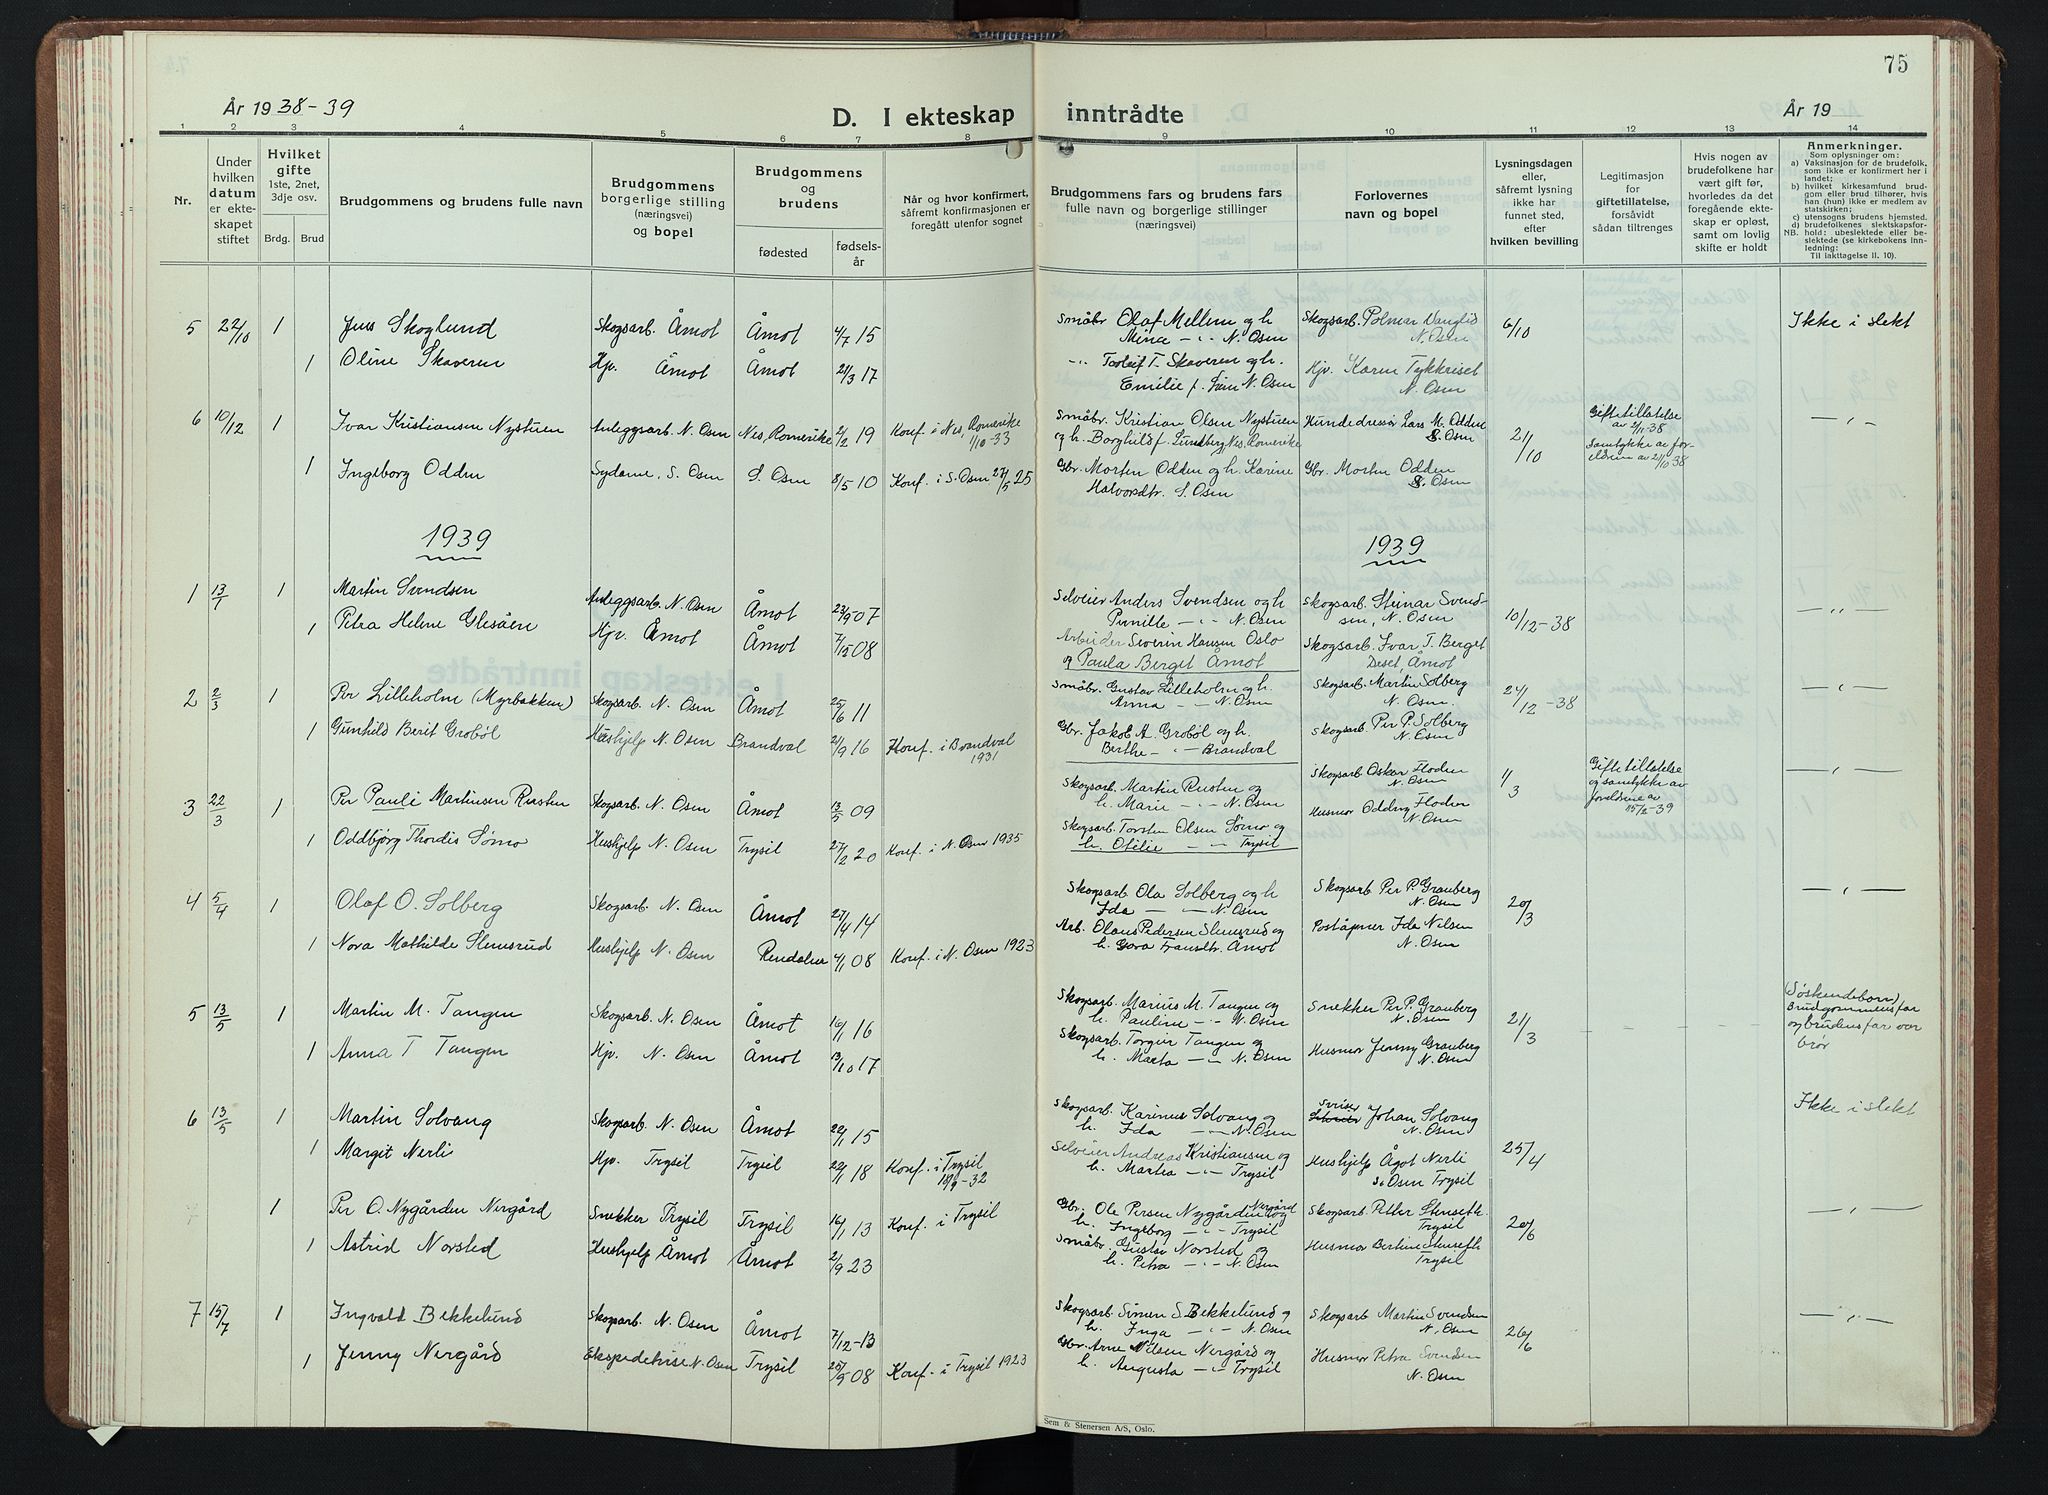 75
År 1938-39
D. I ekteskap inntrådte
År 19
1 2 3 4 5 6 7 8 9 10 11 12 13 14
Nr.
Under hvilken datum er ekteskapet stiftet
Hvilket gifte
1ste, 2net, 3dje osv.
Brdg. Brud
Brudgommens og brudens fulle navn
Brudgommens borgerlige stilling (næringsvei) og bopel
Brudgommens og brudens
fødested
fødsels-år
Når og hvor konfirmert, såfremt konfirmasjonen er foregått utenfor sognet
Brudgommens fars og brudens fars
fulle navn og borgerlige stillinger
(næringsvei)
Forlovernes
navn og bopel
Lysningsdagen eller, såfremt lysning ikke har funnet sted, efter hvilken bevilling
Legitimasjon for giftetillatelse, forsåvidt sådan tiltrenges
Hvis nogen av brudefolkene har vært gift før, hvorledes da det foregående ekteskap er opløst, samt om lovlig skifte er holdt
Anmerkninger.
Som oplysninger om:
a) Vaksinasjon for de brudefolk, som ikke er konfirmert her i landet;
b) hvilket kirkesamfund brudgom eller brud tilhører, hvis han (hun) ikke er medlem av statskirken;
c) utensogns brudens hjemsted.
d) brudefolkenes slektskapsforhold: ubeslektede eller beslektede (se kirkebokens innledning:
NB.
Til iakttagelse II. 10).
5 22/10 1 Jens Skoglund Skogsarb. Åmot Åmot 4/7 15 Småbr Olaf Mellem og h. Skogsarb. Polmar Vanglid 6/10 Ikke i slekt
Mina -"- N. Osen N. Osen
1 Oline Skaveren Hjv. Åmot Åmot 21/3 17 -"- T. Skaveren og h. Hjv. Karen Tykkriset
Emilie f. N. Osen N. Osen
6 10/12 1 Ivar Kristiansen Nystuen Anleggsarb. N. Osen Nes, Romerike 2/2 19 Konf. i Nes, Romerike 1/10-33 Småbr. Kristian Olsen Nystuen Hundedressør Lars M. Odden 21/10 Giftetillatelse av 2/11-38 -"-
og h. Borghild f. Lundberg, Nes, Romerike S. Osen Samtykke av foreldrene av 21/10 38
1 Ingeborg Odden Sydame, S. Osen S. Osen 8/5 10 Konf. i S. Osen 24/5 25 Gbr. Morten Odden og h. Karine Gbr. Morten Odden
Halvorsdtr. S. Osen S. Osen
1939 1939
1 13/1 1 Martin Svendsen Anleggsarb. N. Osen Åmot 23/9 07 Selveier Anders Svendsen og h. Skogsarb. Steinar Svendsen, N. Osen 10/12-38 -"-
Pernille -"- N. Osen
1 Petra Helene Glesåen Hjv. Åmot Åmot 7/12 08 Arbeider Severin Hansen Oslo Skogsarb. Ivar T. Berget
og Paula Berget Åmot Deset, Åmot
2 2/3 1 Per Lilleholm (Myrbakken) Skogsarb. N. Osen Åmot 25/6 11 Småbr. Gustav Lilleholm og h. Skogsarb. Martin Solberg 24/12-38 -"-
Anna -"- N. Osen N. Osen
1 Gunhild Berit Grobøl Hushjelp N. Osen Brandval 21/9 16 Konf. i Brandval 1931 Gbr. Jakob A. Grobøl og h. Skogsarb Per P. Solberg
Berthe -"- Brandval N. Osen
3 22/3 1 Per Pauli Martinsen Rusten Skogsarb. N. Osen Åmot 13/5 09 Skogsarb. Martin Rusten og Skogsarb Oskar Floden 4/3 Giftetillatelse og samtykke av foreldrene av 15/2-39 -"-
h. Marie -"- N. Osen N. Osen
1 Oddbjørg Thordis Sømo Hushjelp N. Osen Trysil 27/2 20 Konf. i N. Osen 1935 Skogsarb. Torsten Olsen Sømo og Husmor Oddny Floden
h. Otilie -"- Trysil N. Osen
4 5/4 1 Olaf O. Solberg Skogsarb. N. Osen Åmot 27/4 14 Skogsarb Ola Solberg og h Skogsarb Per P. Granberg 20/3 -"-
Ida -"- N. Osen N. Osen
1 Nora Mathilde Slemsrud Hushjelp N. Osen Rendalen 4/1 08 Konf. i N. Osen 1923 Arb. Olaus Pedersen Slemsrud og Poståpner Ida Nilsen
h. Gora Fransdtr. Åmot N. Osen
5 13/5 1 Martin M. Tangen Skogsarb. N. Osen Åmot 16/1 16 Skogsarb. Marius M. Tangen og Snekker Per P. Granberg 21/3 (Søskendebarn) Brudgommens far og brudens far var brør
h. Pauline -"- N. Osen N. Osen
1 Anna T Tangen Hjv. N. Osen Åmot 13/10 17 Skogsarb. Torgeir Tangen og Husmor Jenny Granberg
h. Marta -"- N. Osen N. Osen
6 13/5 1 Martin Solvang Skogsarb. N. Osen Åmot 22/1 15 Skogsarb. Karinus Solvang og Johan Solvang 25/4 Ikke i slekt
h. Ida -"- N. Osen N. Osen
1 Margit Nerli Hjv. Trysil Trysil 22/1 18 Konf. i Trysil 18/9-32 Selveier Andreas Kristiansen og Hushjelp Ågot Nerli
h. Martea -"- Trysil S. Osen Trysil
1 Per O. Nygården Nergård Snekker Trysil Trysil 16/1 13 Konf. i Trysil Gbr. Ole Persen Nygården Nergård og Skogsarb. Petter Stenseth 20/6 -"-
h. Ingeborg -"- Trysil Trysil
1 Astrid Norsted Hushjelp Åmot Åmot 2/9 23 Småbr. Gustav Norsted og Husmor Bertine Stenseth
h. Petra -"- N. Osen Trysil
7 15/7 1 Ingvald Bekkelund Skogsarb. N. Osen Åmot 7/12-13 Skogsarb. Simen S Bekkelund og Skogsarb Martin Svendsen 26/6 -"-
h. Inga -"- N. Osen N. Osen
1 Jenny Nergård Ekspeditrise N. Osen Trysil 25/5 08 Konf. i Trysil 1923 Gbr. Arne Nilsen Nergård og Husmor Petra Svendsen
h. Augusta -"- Trysil N. Osen
Sem & Stenersen A/S, Oslo.